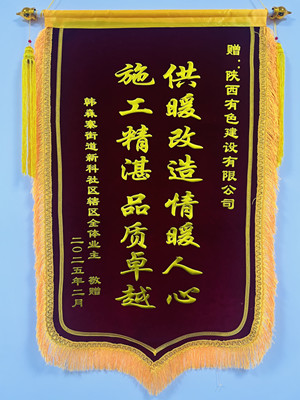 赠：陕西有色建设有限公司
供暖改造情暖人心
施工精湛品质卓越
韩森寨街道新科社区辖区全体业主 敬赠
二〇二五年二月